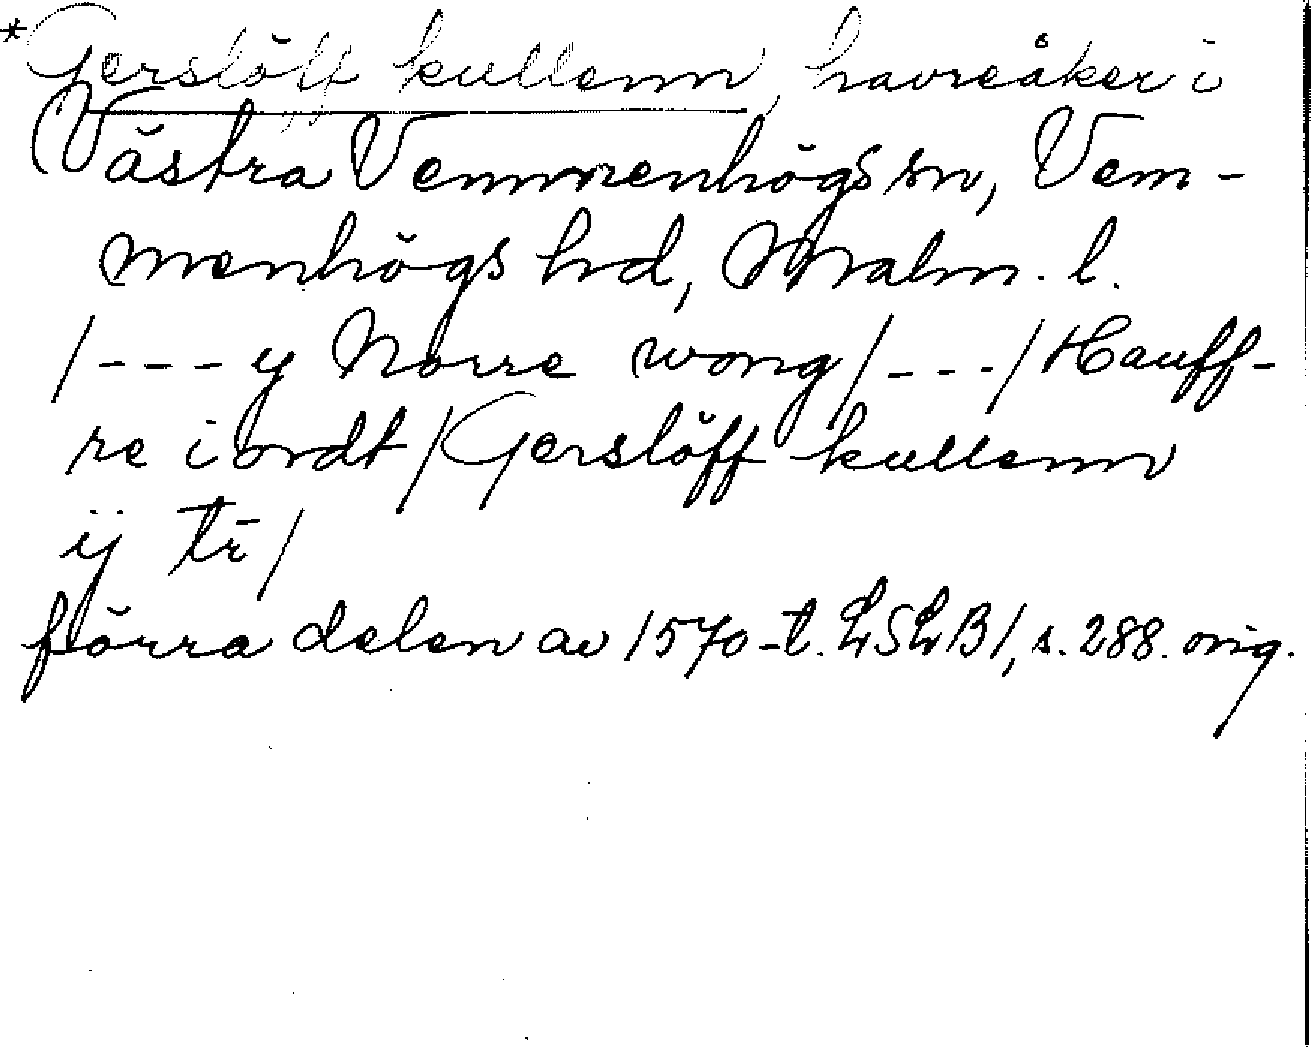 *Gerslöff kullenn, havreåker i
Västra Vemmenhögs sn, Vem-
menhögs hd, Malm. l.
/---y Norre wong/---/Hauff-
re iordt/Gerslöff kullenn
ij tr̄/
förra delen av 1570-t. LSLB1, s. 288. orig.